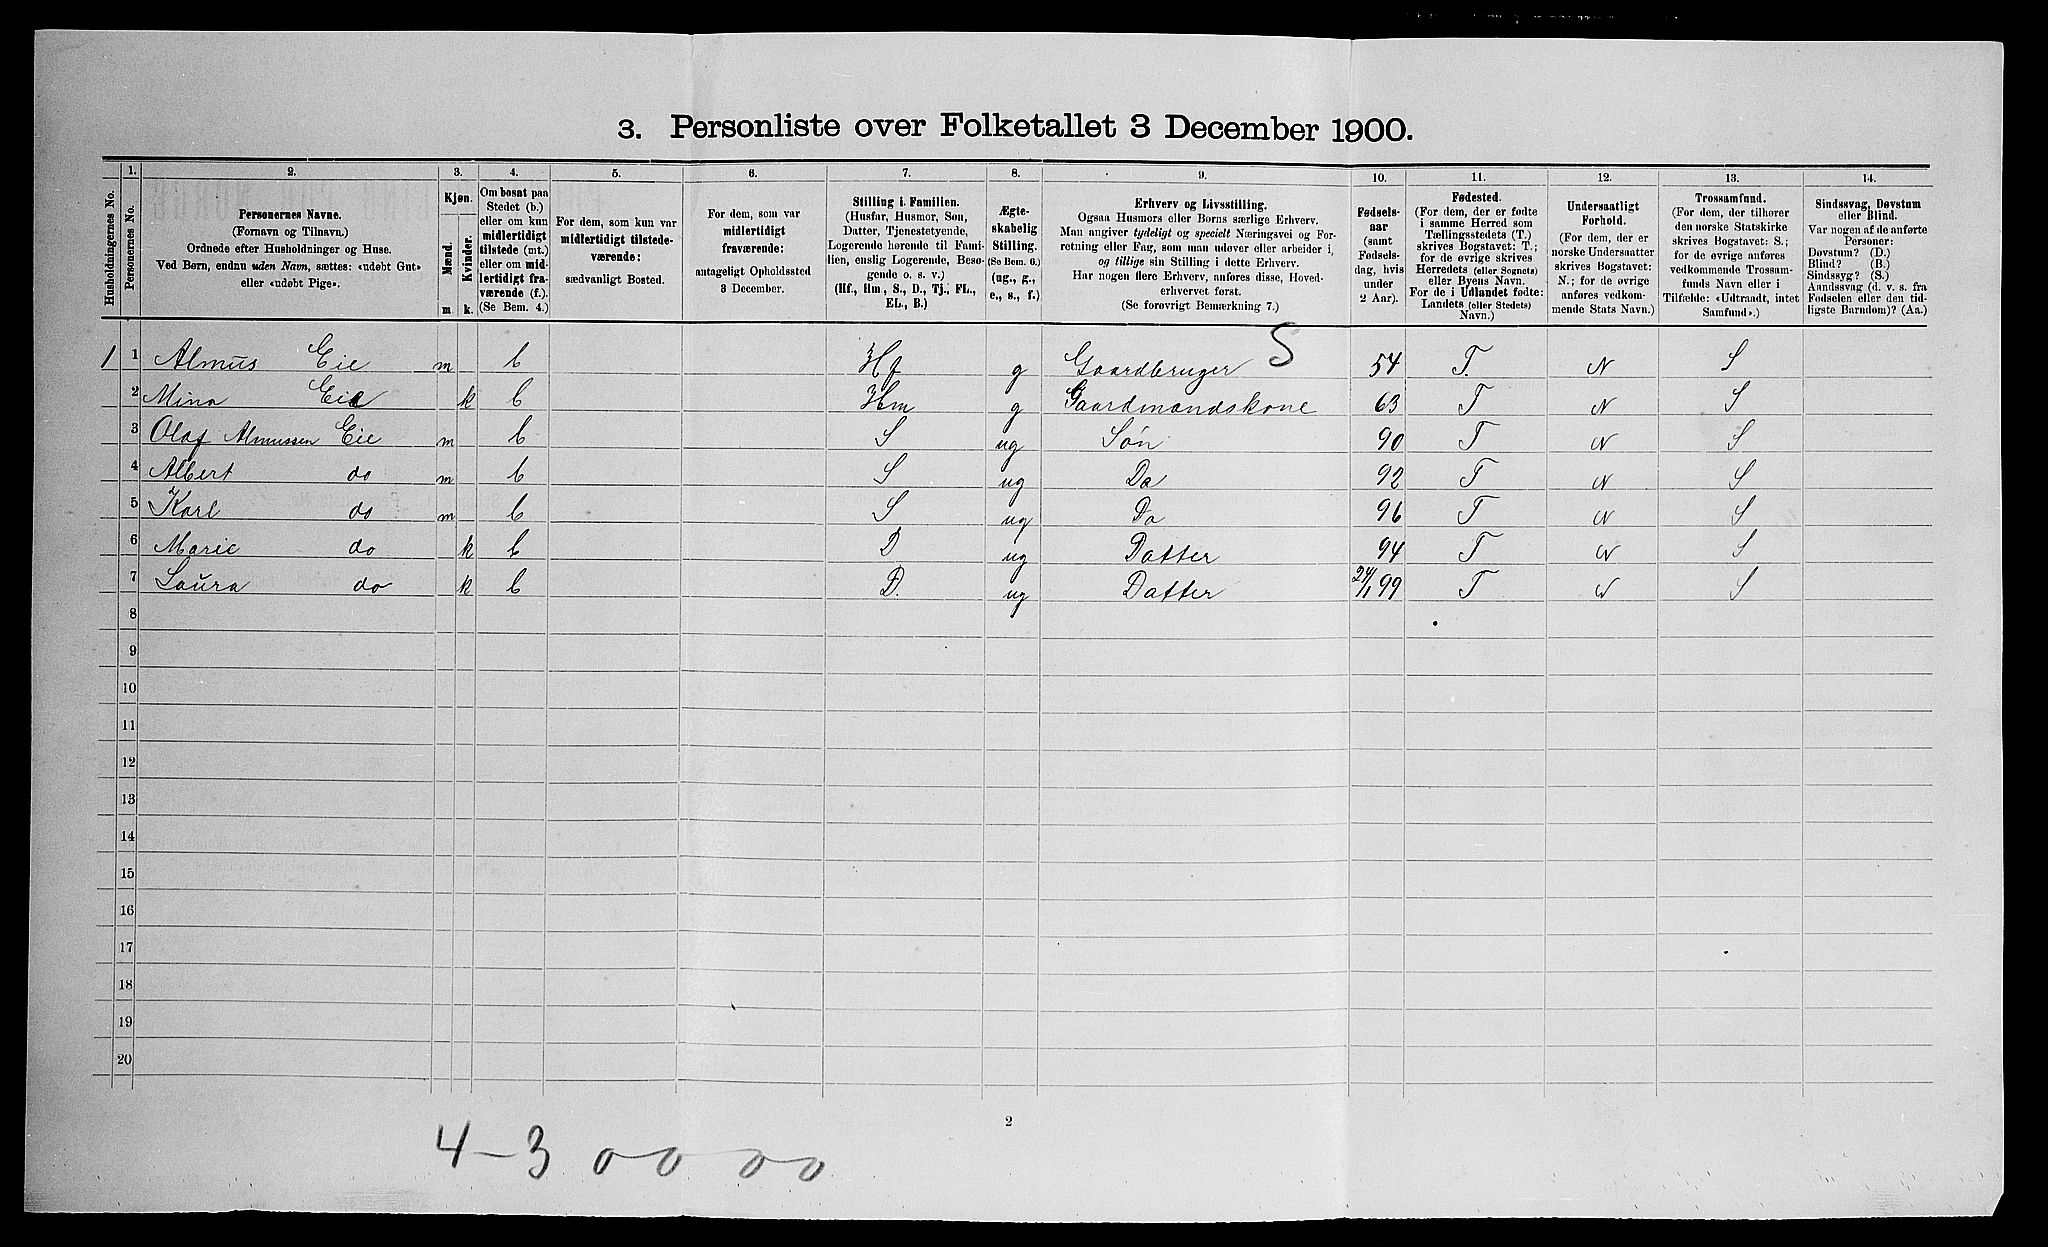 3. Personliste over Folketallet 3 December 1900.
1. 2. 3. 4. 5. 6. 7. 8. 9. 10. 11. 12. 13. 14.
Husholdningernes No.
Personernes No.
Personernes Navne.
(Fornavn og Tilnavn.)
Ordnede efter Husholdninger og Huse.
Ved Børn, endnu uden Navn, sættes: «udøbt Gut»
eller «udøbt Pige».
Kjøn.
Mænd.
Kvinder.
m k.
Om bosat paa
Stedet (b.)
eller om kun
midlertidigt
tilstede (mt.)
eller om mid-
lertidigt fra-
værende (f.).
(Se Bem. 4.)
For dem, som kun var
midlertidigt tilstede-
værende:
sædvanligt Bosted.
For dem, som var
midlertidigt
fraværende:
antageligt Opholdssted
3 December.
Stilling i Familien.
(Husfar, Husmor, Søn,
Datter, Tjenestetyende,
Logerende hørende til Fami-
lien, enslig Logerende, Besø-
gende o. s. v.)
(Hf., Hm., S., D., Tj., FL.,
EL., B.)
Ægte-
skabelig
Stilling.
(Se Bem. 6.)
(ug., g.,
e., s., f.)
Erhverv og Livsstilling.
Ogsaa Husmors eller Børns særlige Erhverv.
Man angiver tydeligt og specielt Næringsvei og For-
retning eller Fag, som man udøver eller arbeider i,
og tillige sin Stilling i dette Erhverv.
Har nogen flere Erhverv, anføres disse, Hoved-
erhvervet først.
(Se forøvrigt Bemærkning 7.)
Fødsels-
aar
(samt
Fødsels-
dag, hvis
under
2 Aar).
Fødested.
(For dem, der er fødte
i samme Herred som
Tællingsstedets (T.)
skrives Bogstavet: T.;
for de øvrige skrives
Herredets (eller Sognets)
eller Byens Navn.
For de i Udlandet fødte:
Landets (eller Stedets)
Navn.)
Undersaatligt
Forhold.
(For dem, der er
norske Undersaatter
skrives Bogstavet:
N.; for de øvrige
anføres vedkom-
mende Stats Navn.)
Trossamfund.
(For dem, der tilhører
den norske Statskirke
skrives Bogstavet: S.;
for de øvrige anføres
vedkommende Trossam-
funds Navn eller i
Tilfælde: «Udtraadt, intet
Samfund».)
Sindssvag, Døvstum
eller Blind.
Var nogen af de anførte
Personer:
Døvstum? (D.)
Blind? (B.)
Sindssyg? (S.)
Aandssvag (d. v. s. fra
Fødselen eller den tid-
ligste Barndom)? (Aa.)
S
1 1 Almus Eie m b Hf g Gaardbruger 54 T. N S
2 Mina Eie k b Hm g Gaardmandskone 63 T N S
3 Olaf Almussen Eie m b S ug Søn 90 T N S
4 Albert do m b S ug Do 92 T N S
5 Karl do m b S ug Do 96 T N S
6 Marie do k b D ug Datter 94 T N S
7 Laura do k b D. ug Datter 24/1 99 T N S
8
9
10
11
12
13
14
15
16
17
18
19
20
2
4-3 00 00